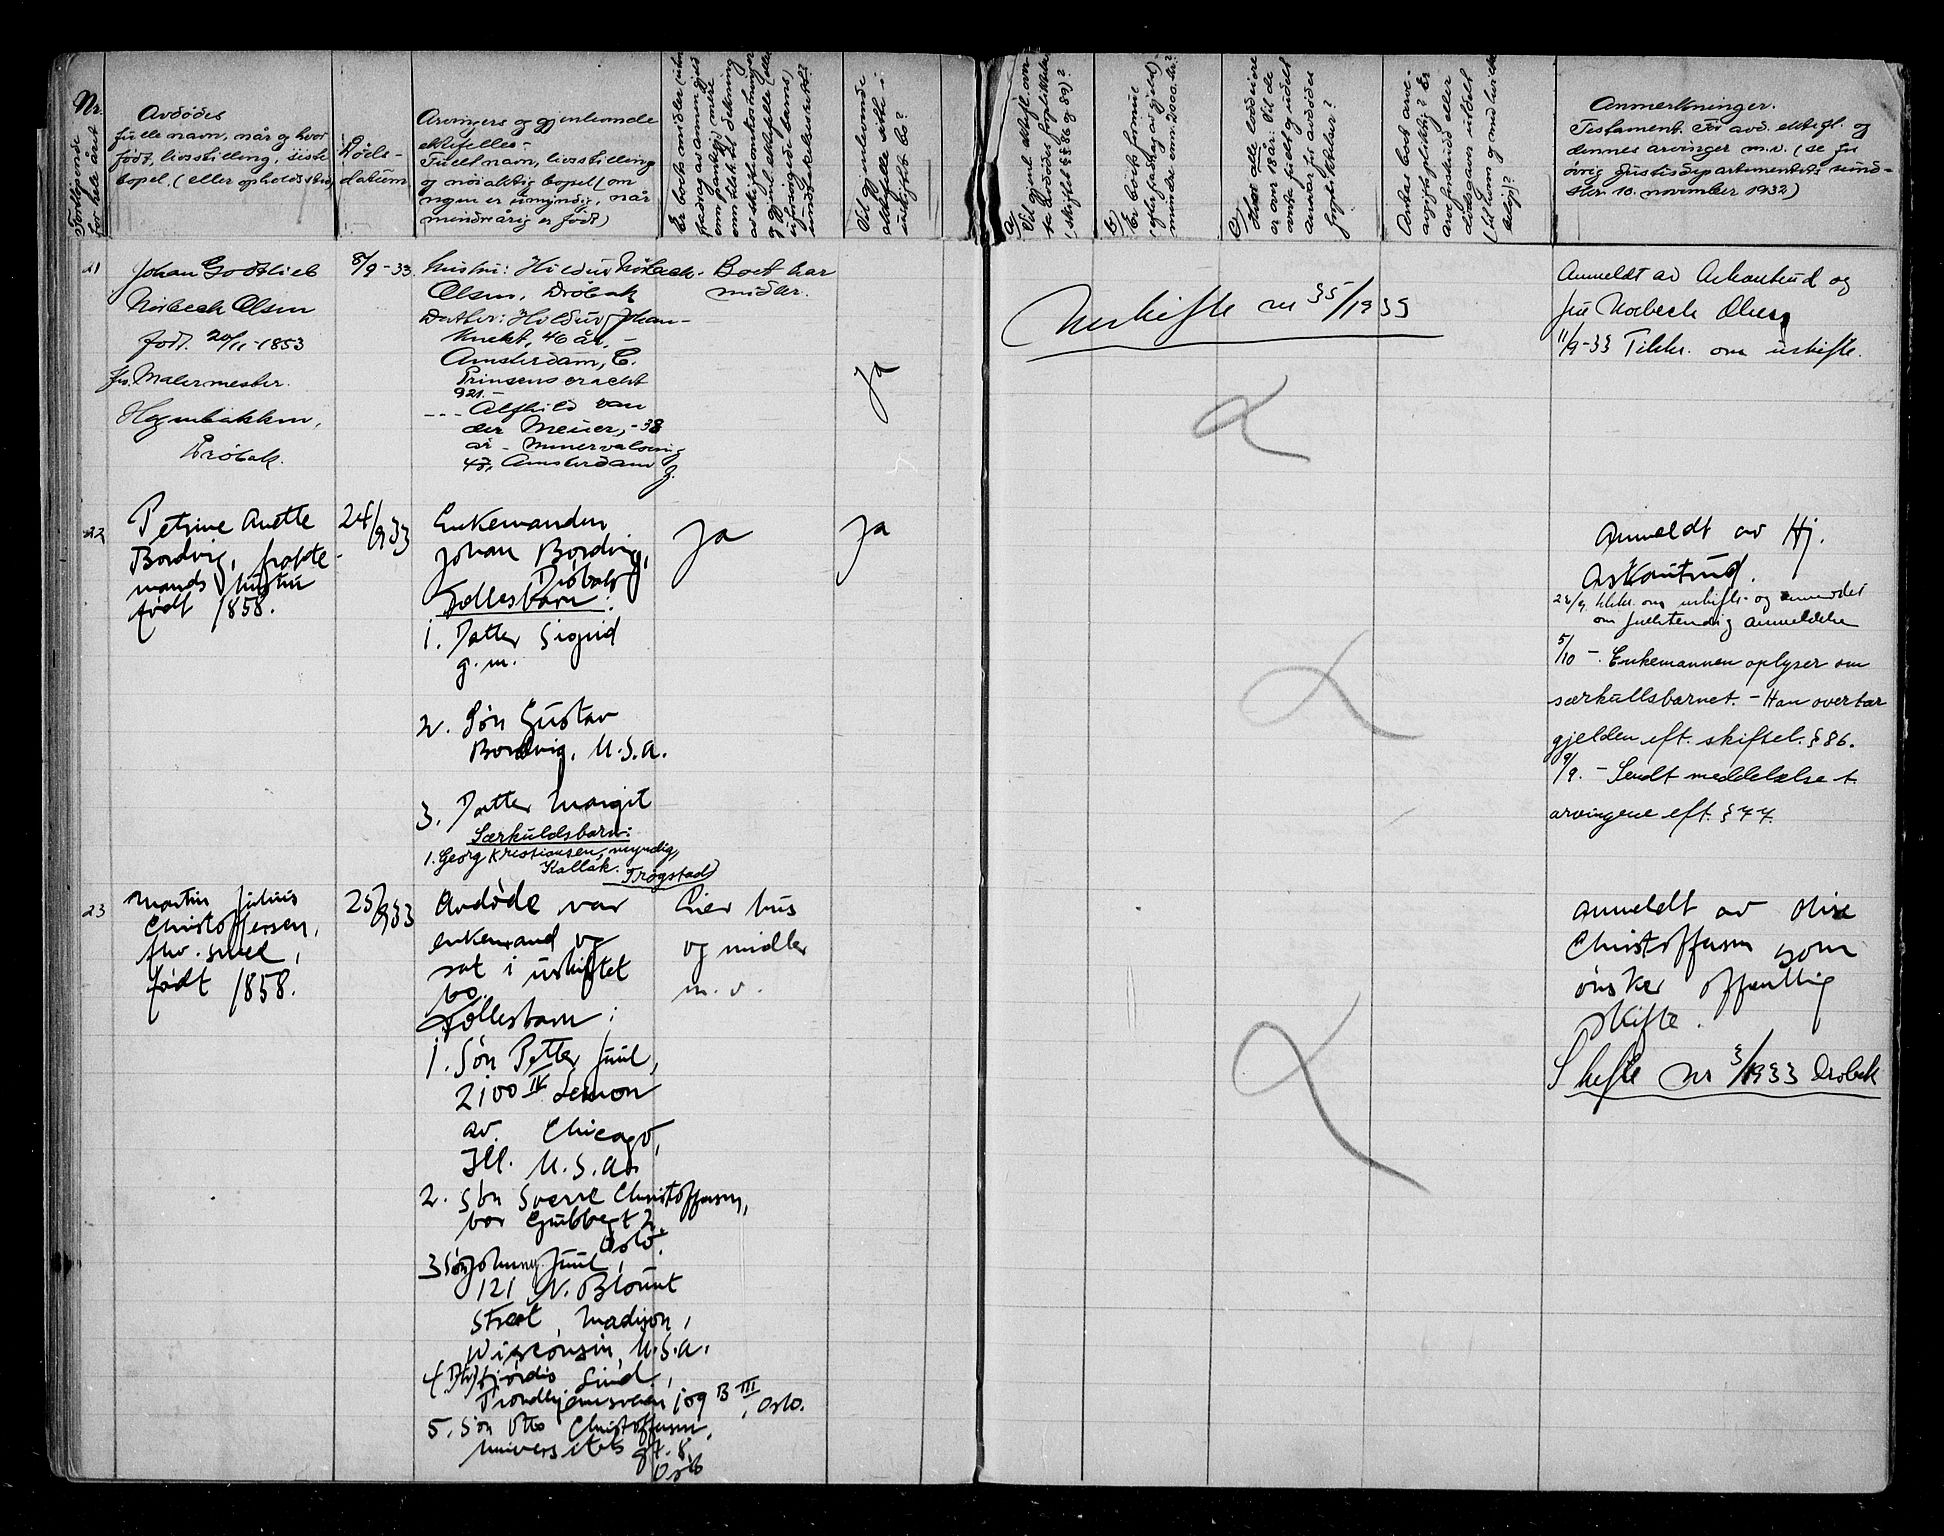 Nr.
Fortløpende
for hele året
Avdødes
fulle navn, når og hvor
født, livsstilling, siste
bopel (eller opholdssted)
Døds-
datum
Arvingers og gjenlevende
ektefelles-
Fullt navn, livsstilling
og nøiaktig bopel (om
nogen er umyndig, når
mindreårig er født)
Vil gjenlevende
ektefelle sitte i
uskiftet bo?
a)
(skiftel. §§ 86 og 89)?
b)
Er boets formue
(efter fradrag av gjeld)
mindre enn 2000 kr.?
c)
er over 18 år: Vil de
ansvar for avdødes
forpliktelser?
Antas boet arve-
avgiftspliktig? Er
arveforskudd eller
dødsgaver utdelt
(til hvem og med hvilke
beløp)?
Anmerkninger.
Testament. Før avd. ektefl. og
dennes arvinger m.v. (se for
øvrig Justisdepartementets rund-
skr. 10. november 1932)
21
Johan Gottlieb
Norbeck Olsen
født. 20/11-1853
fhv. Malermester.
Drøbak.
8/9-33.
Hustru: Hildur Norbeck-
Olsen, Drøbak
Datter: Hildur Johan-
Knekt, 46 år, -
Amsterdam, C.
Prinsens gracht
921.-
--- Alfhild van
der Meuer, -38
år - Minervalaning
47, Amsterdam
Z.
Boet har
midler.
Ja
Uskifte nr 35/1933
Anmeldt av Askautrud og
fru Norbeck Olsen
11/9-33 Tilskr. om uskifte.
22
Petrine Anette
Bordvig, frakte-
mands hustru
født 1858.
24/9 33
Enkemanden
Johan Bordvig,
Drøbak
Fellesbarn:
1. Datter Sigrid
g.m.
2. Søn Gustav
Bordvig, U.S.A.
3. Datter Margit
Særkuldsbarn:
1. Georg Kristiansen, myndig,
Kallak. Trøgstad
Ja
Ja
Anmeldt av Hj.
Askautrud.
28/9 tilskr. om uskifte- og anmodet
om fullstendig anmeldelse
5/10 -. Enkemannen oplyser om
særkullsbarnet. - Han overtar
gjelden eft. skiftel. § 86.
9/9. - Sendt meddelelse t.
arvingene eft. § 77.
23
Martin Julius
Christoffersen,
fhv. smed,
født 1858.
25/9 33
Avdøde var
enkemand og
sat i uskiftet
bo.
Fellesbarn:
1. Søn Petter Juul,
2100 IV Lemon
av. Chicago,
Ill. U.S.A.
2. Søn Sverre Christoffersen,
bor Gubbegt 2
Oslo.
3 Søn Johnny Juul,
121 N. Blount
Street, Madison,
Wisconsin, U.S.A.
4 Dtr Hjørdis Lind,
Trondhjemsveien 109 B III, Oslo.
5. Søn Otto Christoffersen,
Universitets gt. 8
Oslo
Eier hus
og midler
m.v.
Anmeldt av Olise
Christoffersen som
ønsker offentlig
skifte.
Skifte nr 3/1933 Drøbak